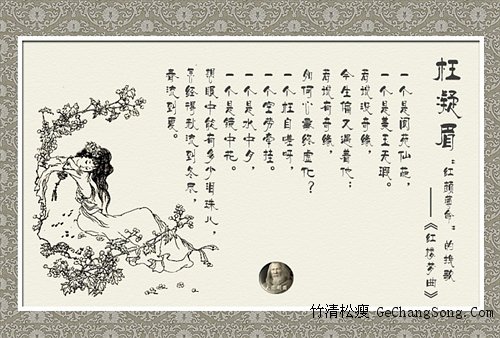 枉凝眉
“红颜薄命”的挽歌
——《红楼梦曲》
一个是阆苑仙葩，
一个是美玉无瑕。
若说没奇缘，
今生偏又遇着他；
若说有奇缘，
如何心事终虚化？
一个枉自嗟呀，
一个空劳牵挂。
一个是水中月，
一个是镜中花。
想眼中能有多少泪珠儿，
怎经得秋流到冬尽，
春流到夏。
竹清松瘦 GeChangSong.Com